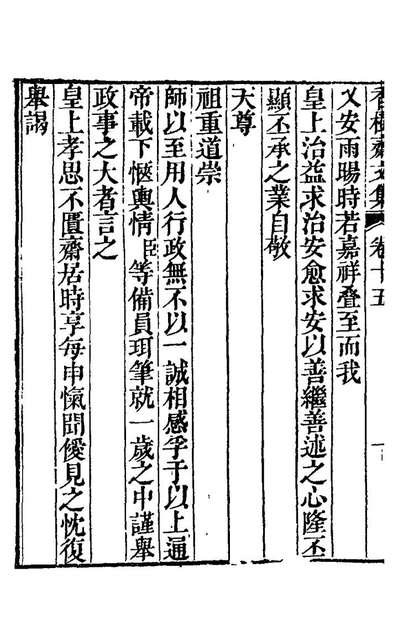 香樹齋文集 卷十五
乂安雨暘時若嘉祥疊至而我
皇上治益求治安愈求安以善繼善述之心隆丕
顯丕承之業自敬
天尊
祖重道崇
師以至用人行政無不以一誠相感孚于以上通
帝載下愜輿情臣等備員珥筆就一歲之中謹舉
政事之大者言之
皇上孝思不匱齋居時享每申愾聞僾見之忱復
舉謁